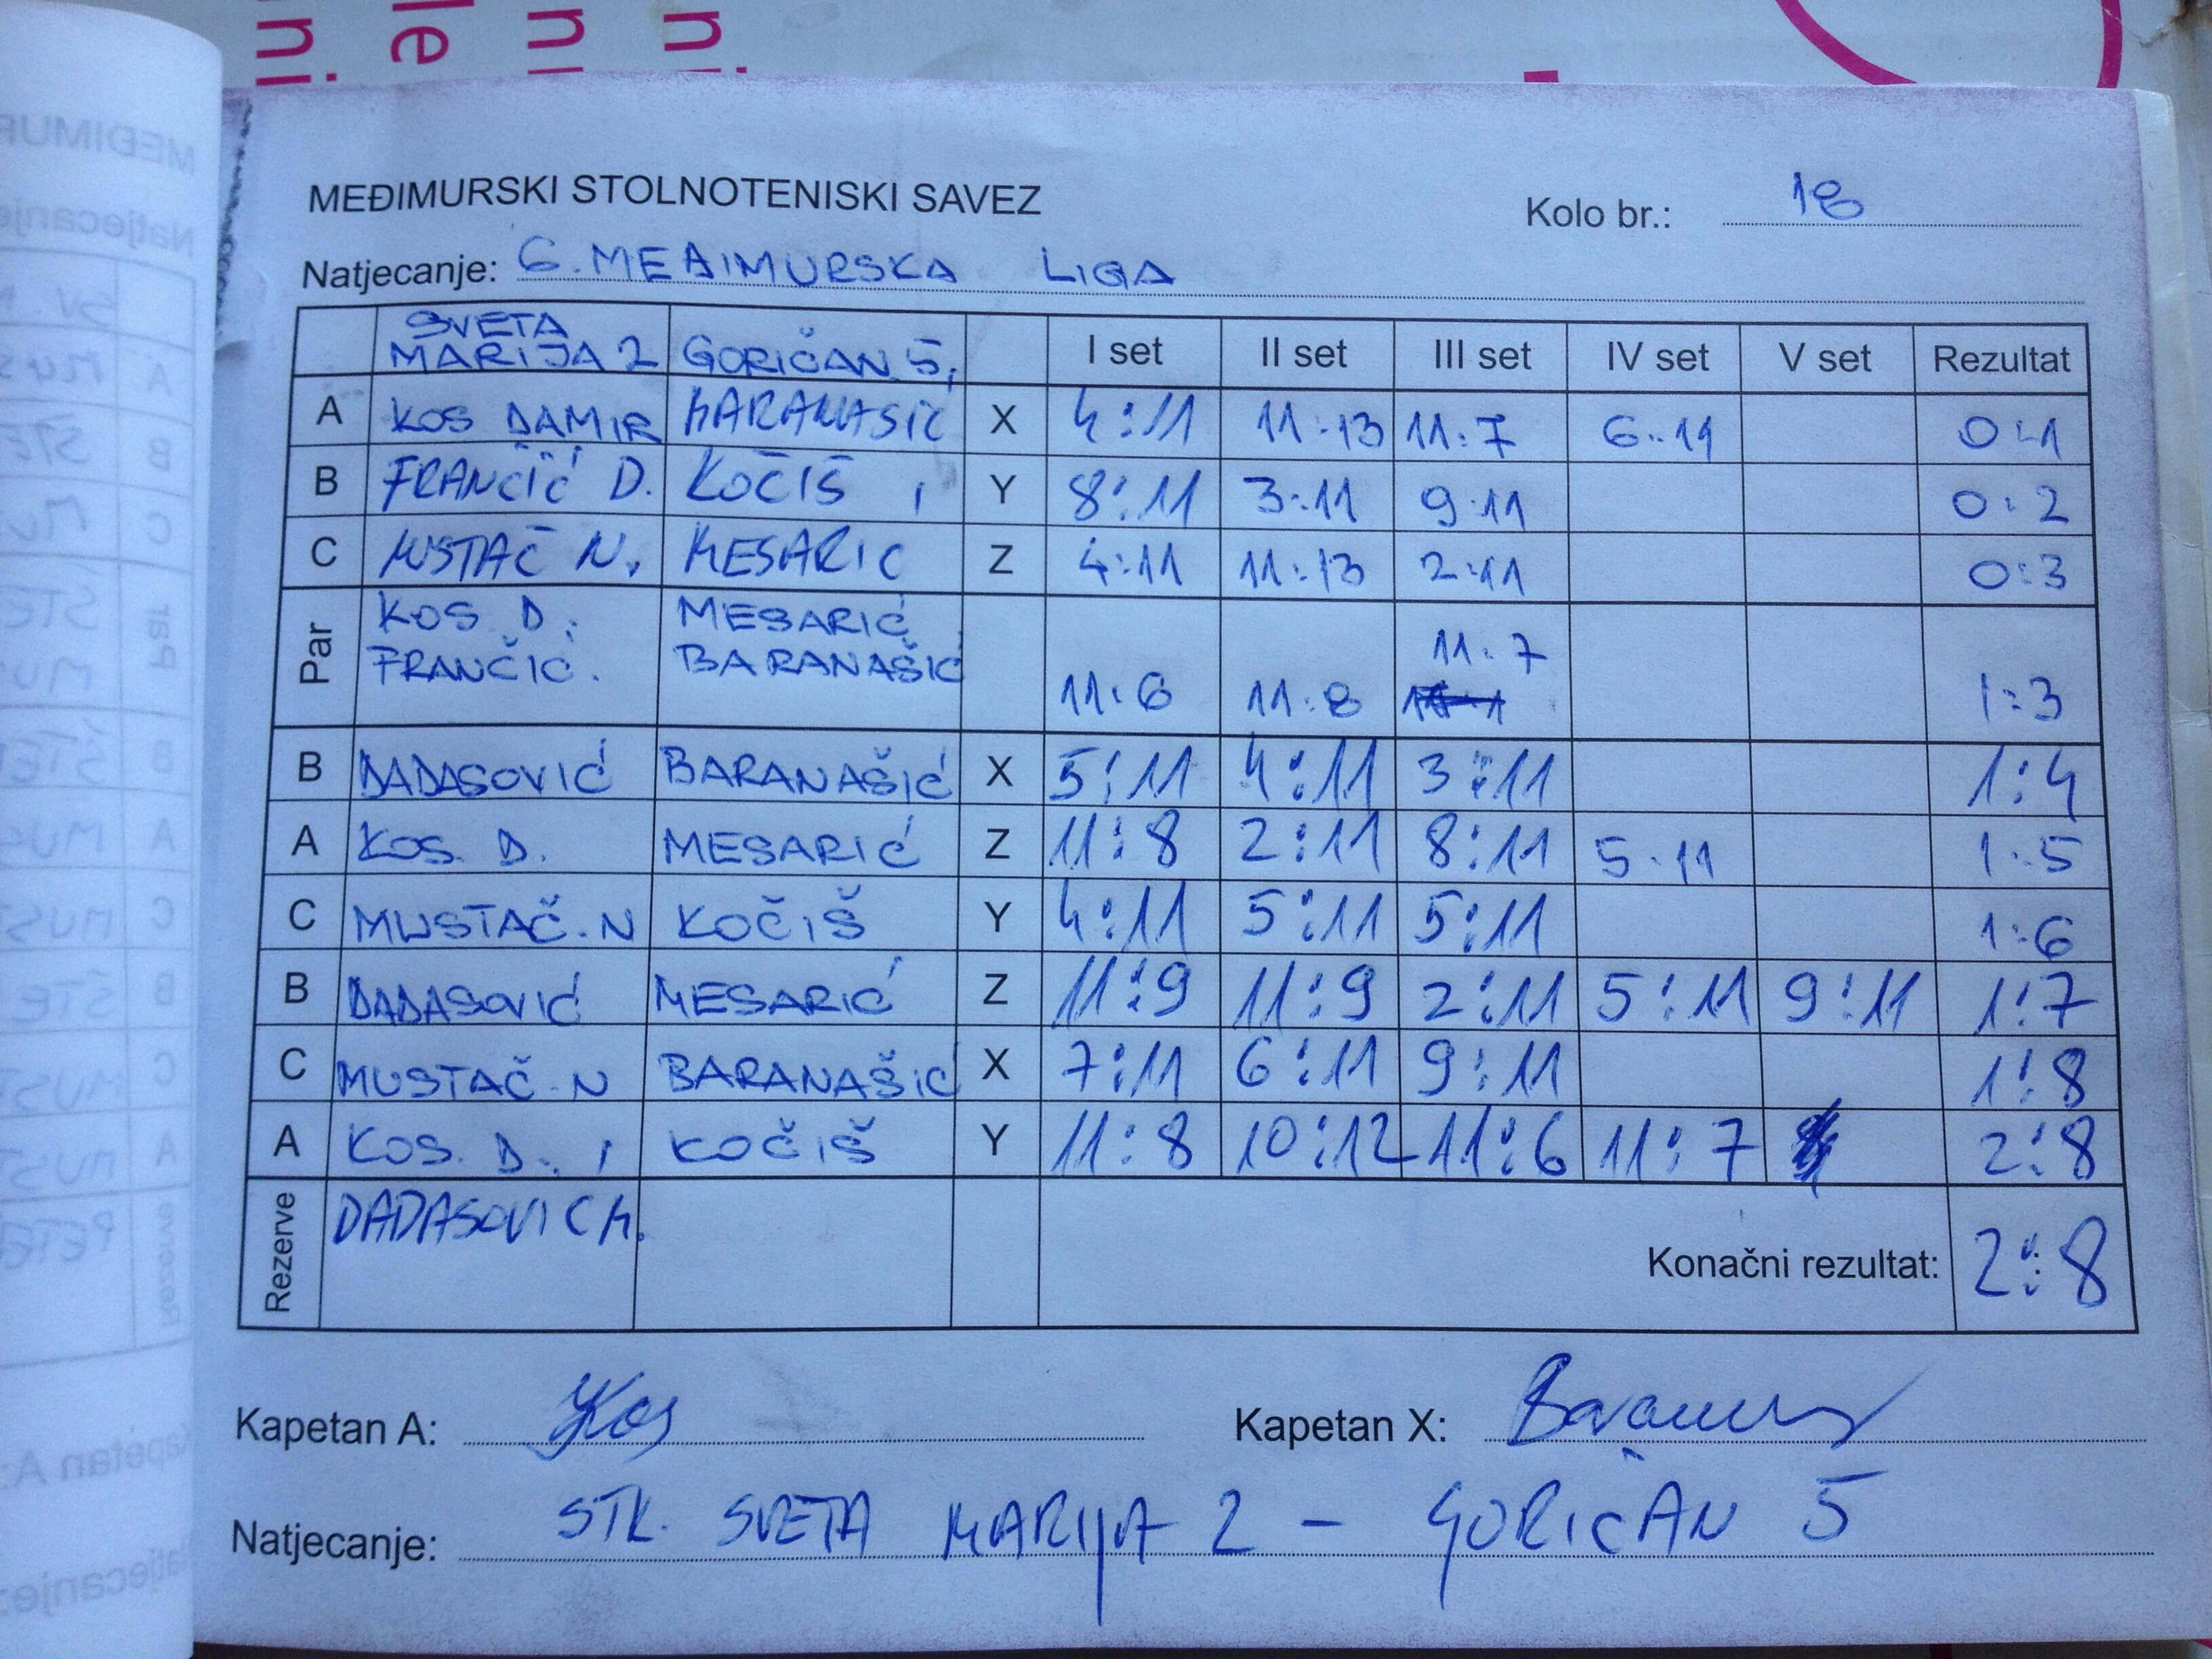 MEĐIMURSKI STOLNOTENISKI SAVEZ
Kolo br.: 18
Natjecanje: 6. MEĐIMURSKA LIGA
SVETA MARIJA 2 GORIČAN 5, I set II set III set IV set V set Rezultat
A KOS DAMIR BARANASIĆ X 4:11 11:13 11:7 6:11 0:1
B FRANČIĆ D. KOČIŠ Y 8:11 3:11 9:11 0:2
C MUSTAČ N. MESARIC Z 4:11 11:13 2:11 0:3
Par KOS D. MESARIĆ
FRANČIĆ. BARANAŠIĆ 11:6 11:8 11:7 1:3
B DADASOVIĆ BARANAŠIĆ X 5:11 4:11 3:11 1:4
A KOS. D. MESARIĆ Z 11:8 2:11 8:11 5:11 1:5
C MUSTAČ.N KOČIŠ Y 4:11 5:11 5:11 1:6
B DADASOVIĆ MESARIĆ Z 11:9 11:9 2:11 5:11 9:11 1:7
C MUSTAČ.N BARANAŠIĆ X 7:11 6:11 9:11 1:8
A KOS. D. KOČIŠ Y 11:8 10:12 11:6 11:7 2:8
Rezerve DADASOVIC M.
Konačni rezultat: 2:8
Kapetan A: Kos Kapetan X:
Natjecanje: STK. SVETA MARIJA 2 - GORIČAN 5